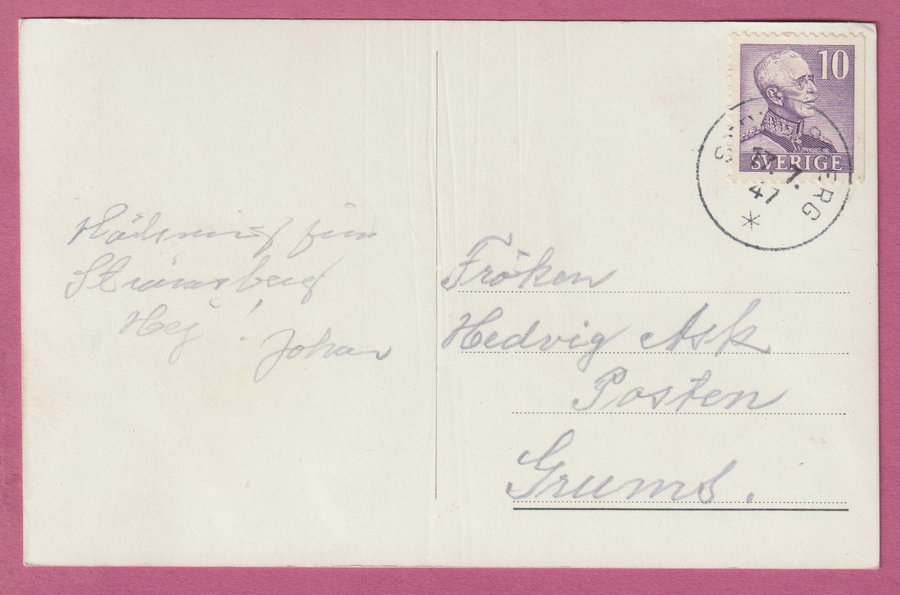 10
SVERIGE
7.
47
Hälsning från
Strömsberg
Hej!
Johan
Fröken
Hedvig Ask
Posten
Grums.